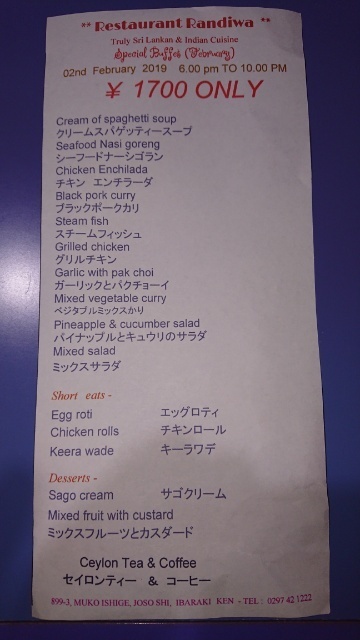 ** Restaurant Randiwa **
Truly Sri Lankan & Indian Cuisine
Special Buffet (February)
02nd February 2019 6.00 pm TO 10.00 PM
¥ 1700 ONLY
Cream of spaghetti soup
クリームスパゲッティースープ
Seafood Nasi goreng
シーフードナーシゴラン
Chicken Enchilada
チキン エンチラーダ
Black pork curry
ブラックポークカリ
Steam fish
スチームフィッシュ
Grilled chicken
グリルチキン
Garlic with pak choi
ガーリックとパクチョーイ
Mixed vegetable curry
ベジタブルミックスかり
Pineapple & cucumber salad
パイナップルとキュウリのサラダ
Mixed salad
ミックスサラダ
Short eats -
Egg roti エッグロティ
Chicken rolls チキンロール
Keera wade キーラワデ
Desserts -
Sago cream サゴクリーム
Mixed fruit with custard
ミックスフルーツとカスダード
Ceylon Tea & Coffee
セイロンティー & コーヒー
899-3, MUKO ISHIGE, JOSO SHI, IBARAKI KEN - TEL : 0297 42 1222